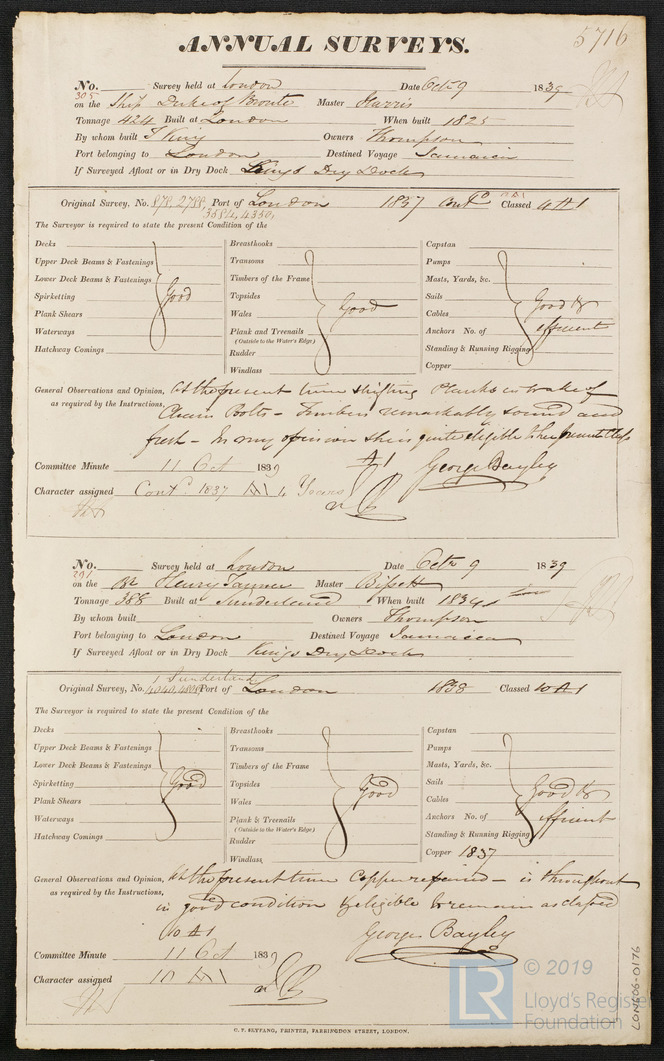 5716
ANNUAL SURVEYS.
No. Survey held at London Date Octr 9 1839
305
on the Ship Duke of Bronte Master Harris
Tonnage 424 Built at London When built 1825
By whom built T King Owners Thompson
Port belonging to London Destined Voyage Jamaica
If Surveyed Afloat or in Dry Dock Kings Dry Dock
Original Survey, No. 878, 2788, Port of London 1837 Contd Classed 4 A1
3584, 4350,
The Surveyor is required to state the present Condition of the
Decks Breasthooks Capstan
Upper Deck Beams & Fastenings Transoms Pumps
Lower Deck Beams & Fastenings Timbers of the Frame Masts, Yards, &c.
Spirketting Good Topsides Good Sails Good &
Plank Shears Wales Cables efficient
Waterways Plank and Treenails Anchors No. of
(Outside to the Water's Edge)
Hatchway Comings Rudder Standing & Running Rigging
Windlass Copper
General Observations and Opinion, At the present time shifting Planks in wake of
as required by the Instructions, Chain Bolts - Timbers remarkably sound and
fresh - In my opinion she is quite eligible to her present Class
A1
Committee Minute 11 Oct 1839 George Bayley
Character assigned Contd. 1837 A1 4 Years
No. Survey held at London Date Octr 9 1839
291
on the Bk Henry Tanner Master Bissett
Tonnage 388 Built at Sunderland When built 1834
By whom built Owners Thompson
Port belonging to London Destined Voyage Jamaica
If Surveyed Afloat or in Dry Dock Kings Dry Dock
1 Sunderland
Original Survey, No. Port of London 1838 Classed 10 A1
The Surveyor is required to state the present Condition of the
Decks Breasthooks Capstan
Upper Deck Beams & Fastenings Transoms Pumps
Lower Deck Beams & Fastenings Timbers of the Frame Masts, Yards, &c.
Spirketting Good Topsides Good Sails Good &
Plank Shears Wales Cables
Waterways Plank & Treenails Anchors No. of efficient
(Outside to the Water's Edge)
Hatchway Comings Rudder Standing & Running Rigging
Windlass Copper 1837
General Observations and Opinion, At the present time Copper repaired - is throughout
as required by the Instructions, in good condition & eligible to remain as classed
10 A1 George Bayley
Committee Minute 11 Oct 1839
Character assigned 10 A1
C. F. SEYFANG, PRINTER, FARRINGDON STREET, LONDON.
LON606-0176
LR © 2019
Lloyd's Register
Foundation